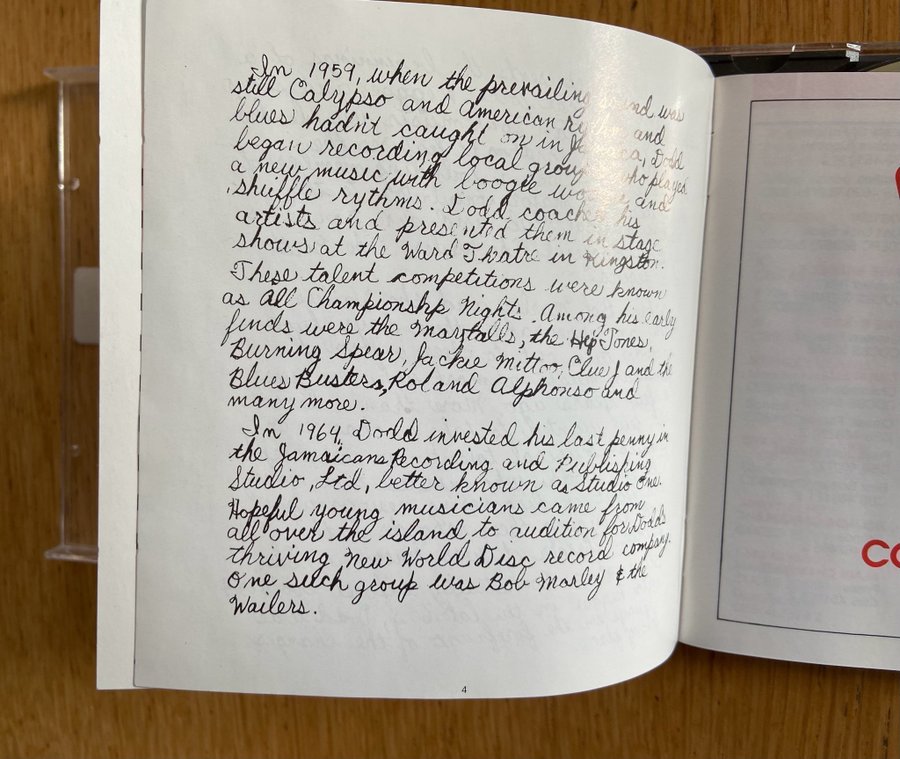 In 1959, when the prevailing sound was
still Calypso and American rythm and
blues hadn't caught on in Jamaica, Dodd
began recording local groups who played
a new music with boogie woogie and
shuffle rythms. Dodd coached his
artists and presented them in stage
shows at the Ward Theatre in Kingston.
These talent competitions were known
as All Championship Nights. Among his early
finds were the Maytalls, the Hep Tones,
Burning Spear, Jackie Mittoo, Clue J and the
Blues Busters, Roland Alphonso and
many more.
In 1964, Dodd invested his last penny in
the Jamaicans Recording and Publishing
Studio, Ltd, better known as Studio One.
Hopeful young musicians came from
all over the island to audition for Dodds
thriving New World Disc record company.
One such group was Bob Marley & the
Wailers.
4